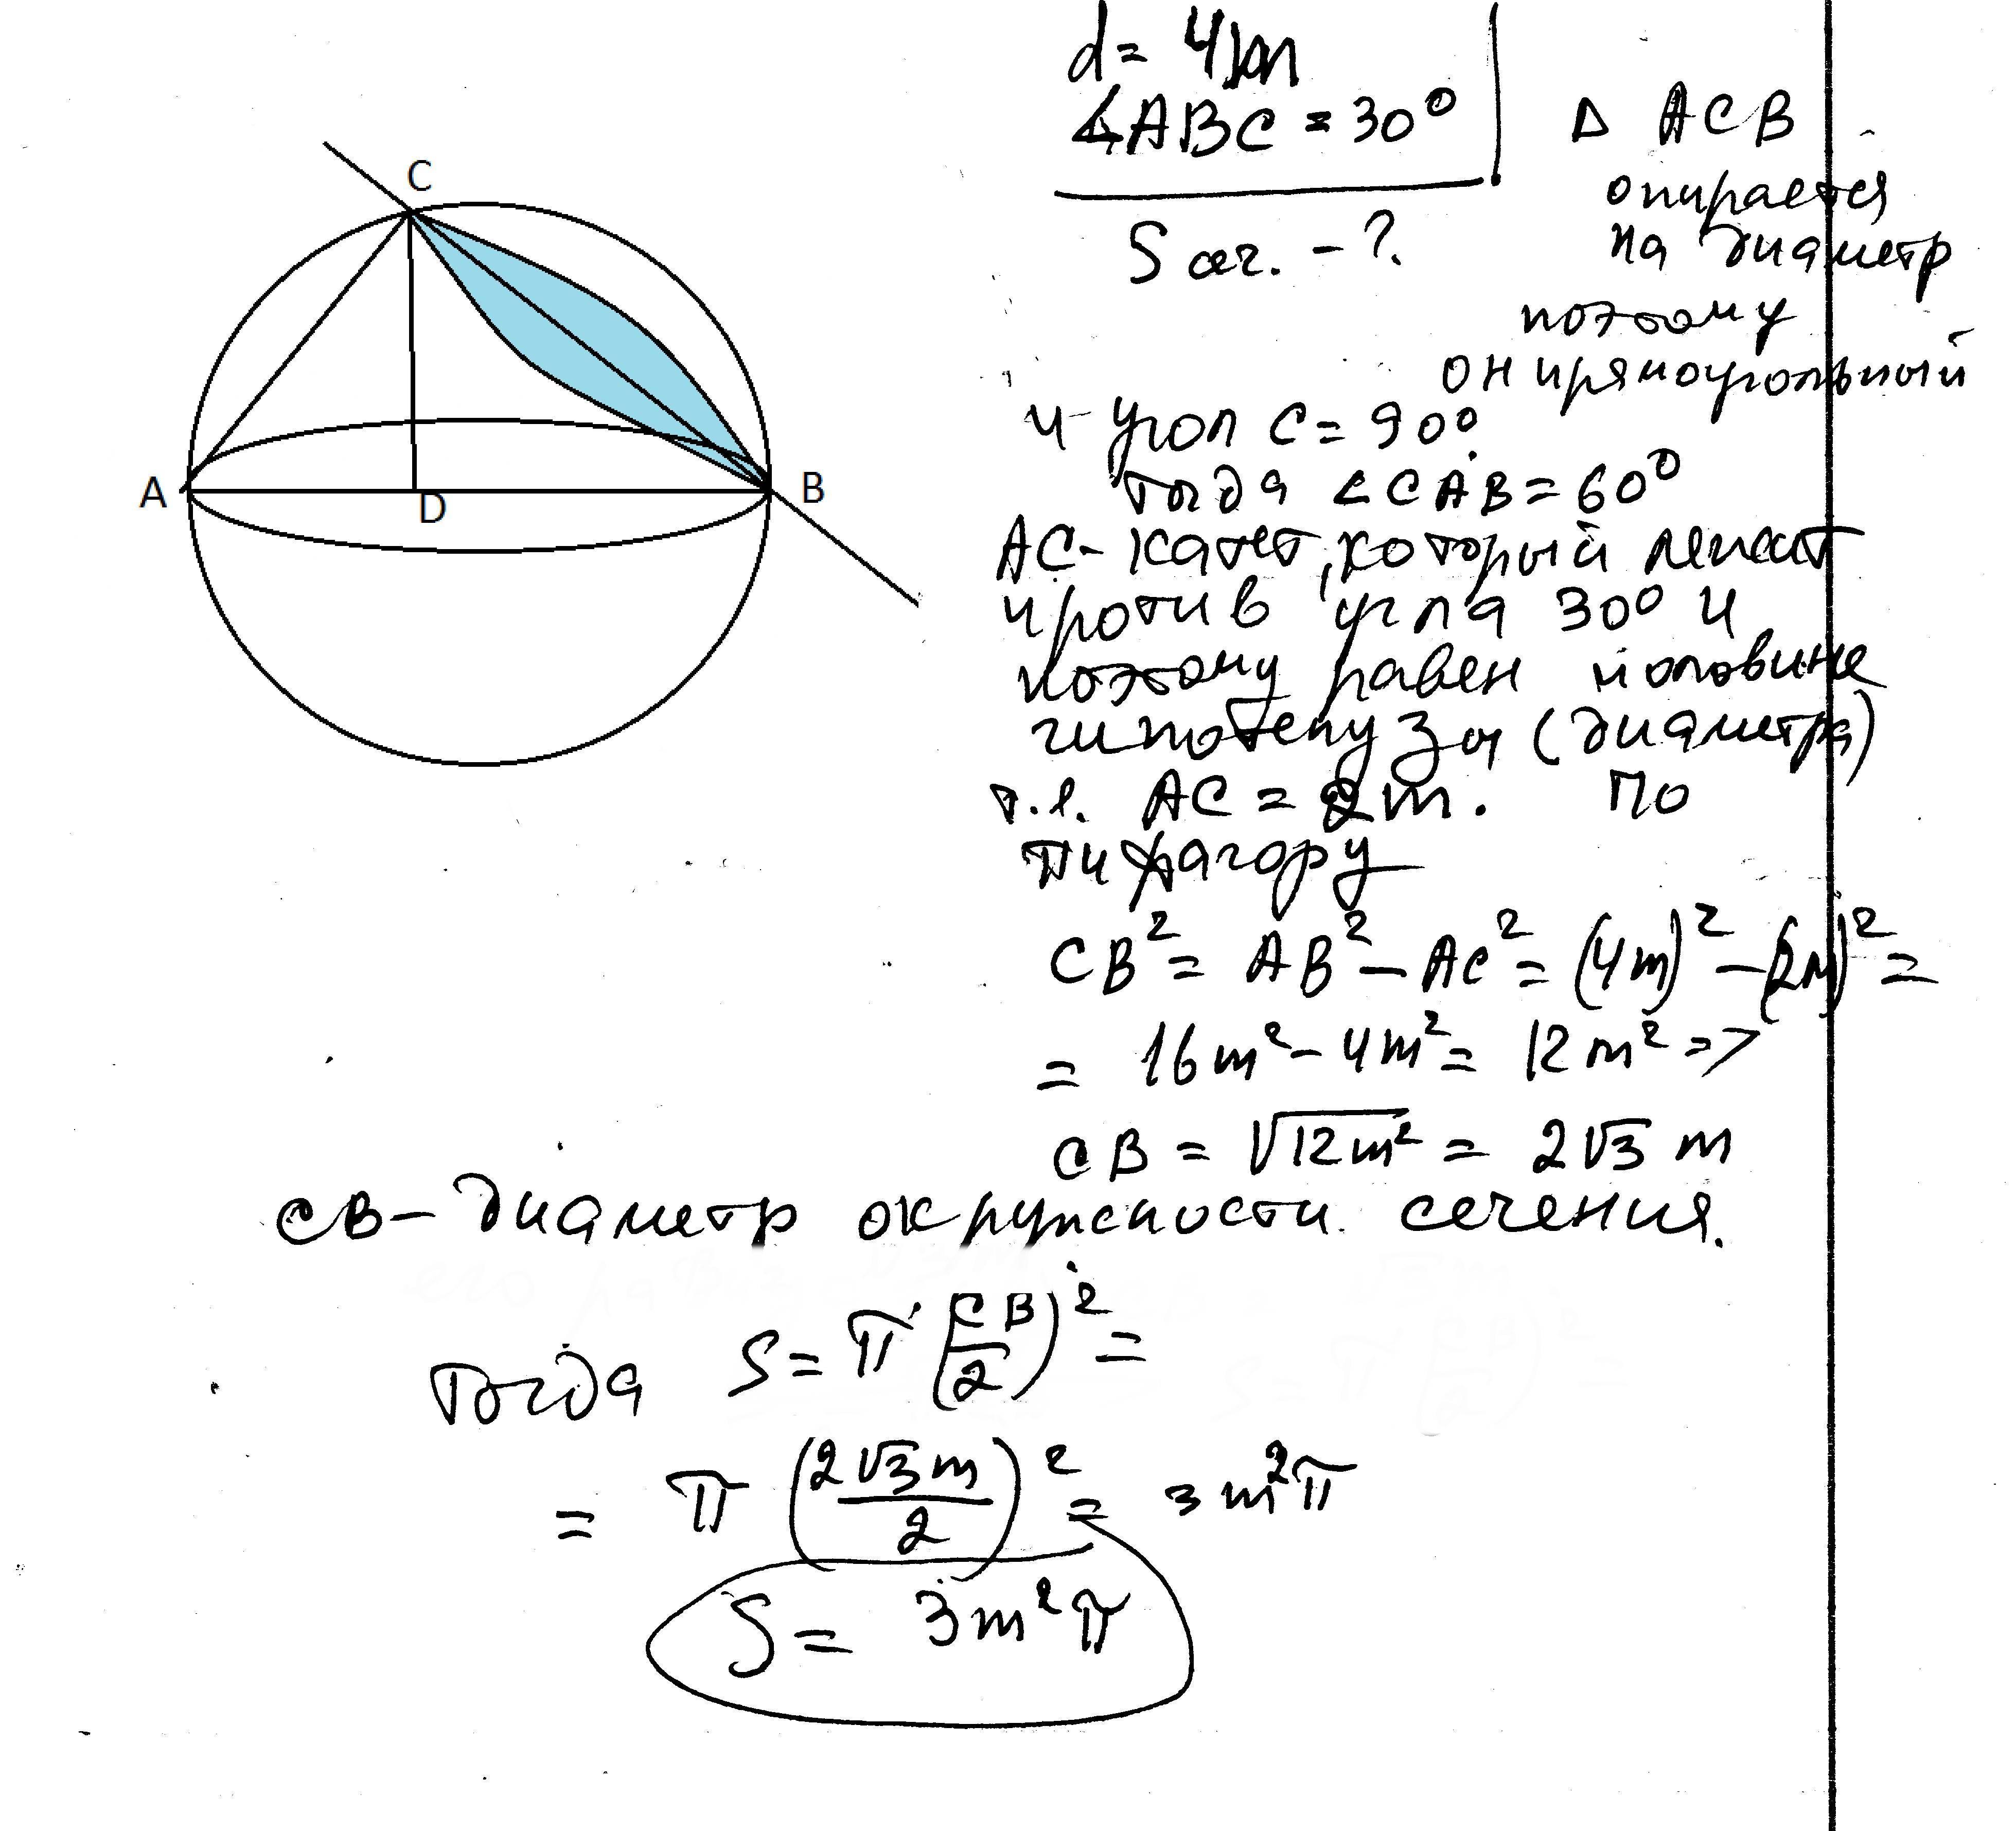 C
A
D
B
d= 4m
∠ABC = 30°
S сеч. - ?
Δ ACB
опирается
на диаметр
поэтому
он прямоугольный
и угол C = 90°
Тогда ∠CAB = 60°
AC- катет, который лежит
против угла 30° и
поэтому равен половине
гипотенузы (диаметра)
т.е. AC = 2m. По
Пифагору
CB² = AB² - AC² = (4m)² - (2m)² =
= 16m² - 4m² = 12m² =>
CB = √12m² = 2√3 m
CB - диаметр окружности сечения.
Тогда S = π (CB/2)² =
= π (2√3m/2)² = 3m²π
S = 3m²π